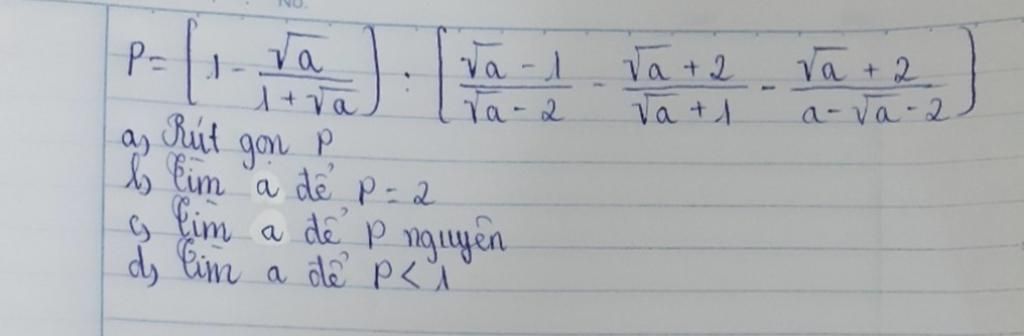 No.
P = [1 - \frac{\sqrt{a}}{1 + \sqrt{a}}] : [\frac{\sqrt{a} - 1}{\sqrt{a} - 2} - \frac{\sqrt{a} + 2}{\sqrt{a} + 1} - \frac{\sqrt{a} + 2}{a - \sqrt{a} - 2}]
a, Rút gọn P
b, Tìm a để P = 2
c, Tìm a để P nguyên
d, Tìm a để P < 1